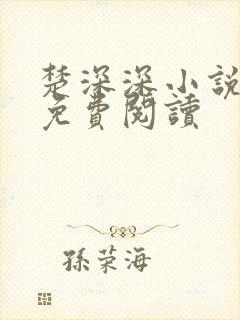 楚深深小說
免費閱讀
孫荣海